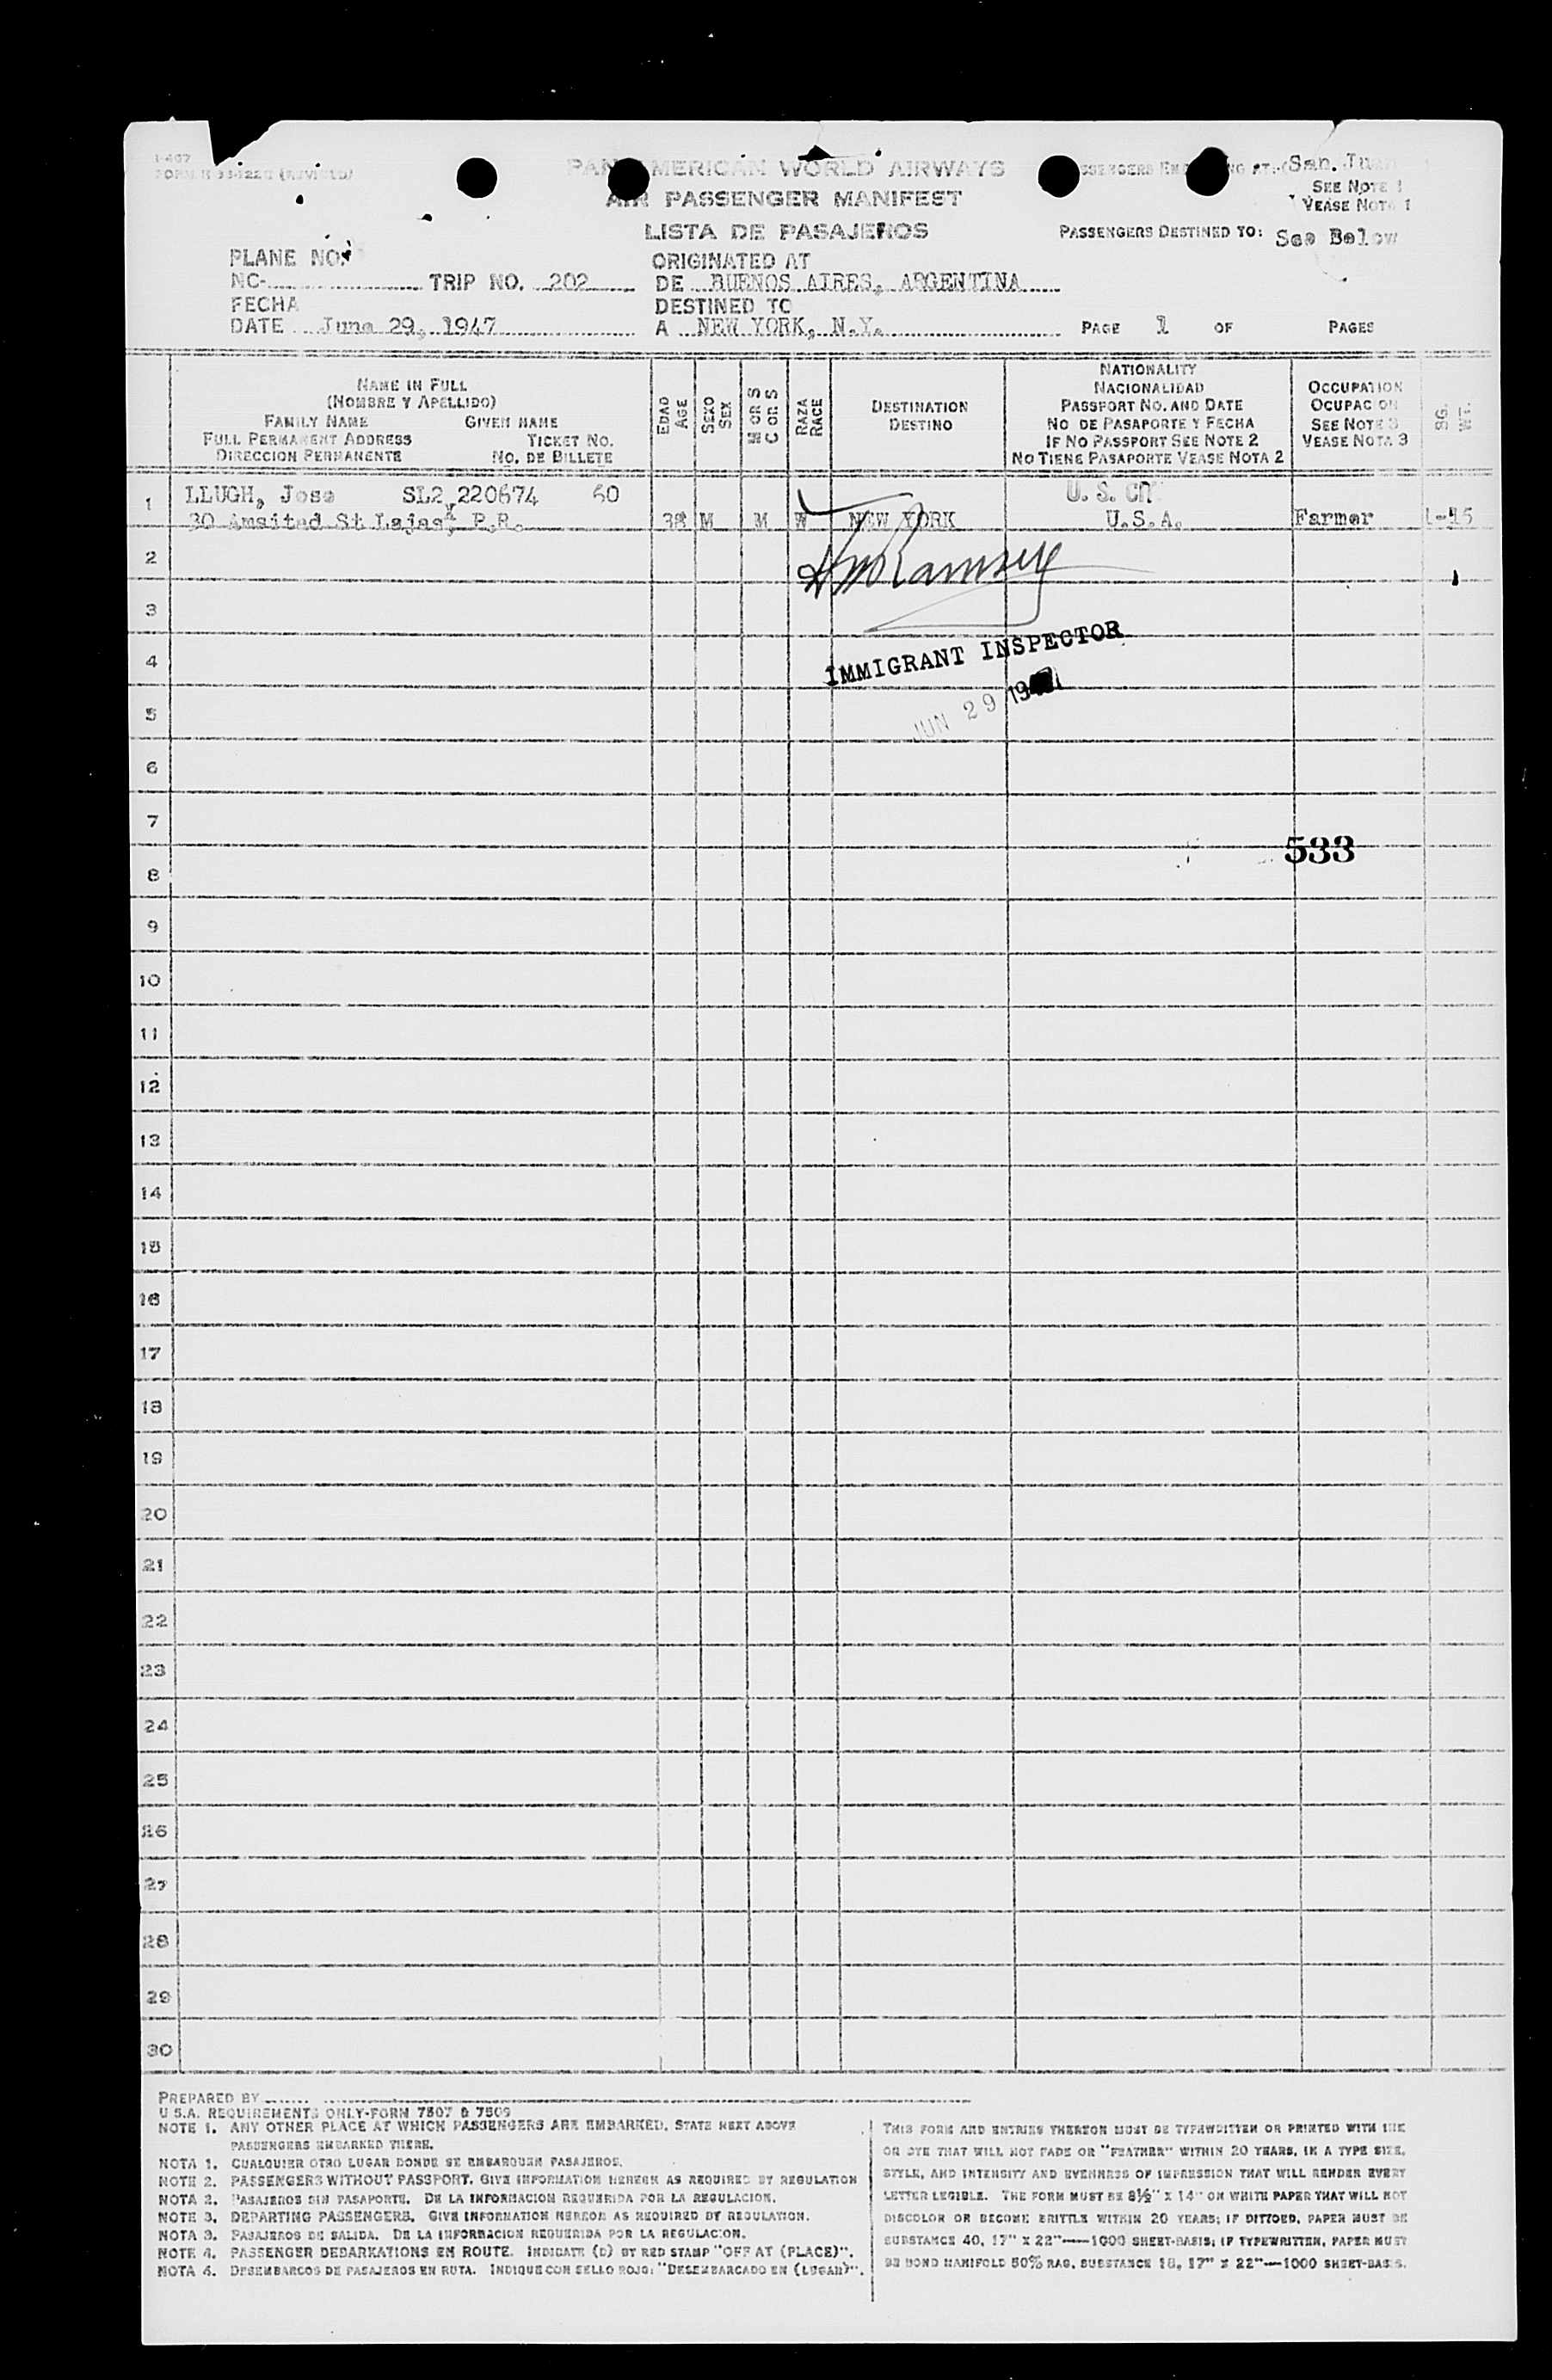 I-407
PAN AMERICAN WORLD AIRWAYS
AIR PASSENGER MANIFEST
LISTA DE PASAJEROS
San. Juan
SEE NOTE 1
VEASE NOTA 1
PASSENGERS DESTINED TO: See Below
PLANE NO.
NC- TRIP NO. 202
FECHA
DATE June 29, 1947
ORIGINATED AT
DE BUENOS AIRES, ARGENTINA
DESTINED TO
A NEW YORK, N.Y.
PAGE 1 OF PAGES
NAME IN FULL
(NOMBRE Y APELLIDO)
FAMILY NAME GIVEN NAME
FULL PERMANENT ADDRESS TICKET NO.
DIRECCION PERMANENTE NO. DE BILLETE
EDAD
AGE
SEXO
SEX
M OR S
C OR S
RAZA
RACE
DESTINATION
DESTINO
NATIONALITY
NACIONALIDAD
PASSPORT NO. AND DATE
NO DE PASAPORTE Y FECHA
IF NO PASSPORT SEE NOTE 2
NO TIENE PASAPORTE VEASE NOTA 2
OCCUPATION
OCUPACION
SEE NOTE 3
VEASE NOTA 3
SG.
WT.
1 LLUGH, Jose SL2 220674 60 U. S. CIT
30 St Lajas, P.R. 38 M M W NEW YORK U.S.A. Farmer
2
Ramsey
3
IMMIGRANT INSPECTOR
4
JUN 29
5
6
7
533
8
9
10
11
12
13
14
15
16
17
18
19
20
21
22
23
24
25
26
27
28
29
30
PREPARED BY
U S.A. REQUIREMENTS ONLY-FORM 7507 & 7509
NOTE 1. ANY OTHER PLACE AT WHICH PASSENGERS ARE EMBARKED, STATE NEXT ABOVE
PASSENGERS EMBARKED THERE.
NOTA 1. CUALQUIER OTRO LUGAR DONDE SE EMBARQUEN PASAJEROS.
NOTE 2. PASSENGERS WITHOUT PASSPORT. GIVE INFORMATION HEREON AS REQUIRED BY REGULATION
NOTA 2. PASAJEROS SIN PASAPORTE. DE LA INFORMACION REQUERIDA POR LA REGULACION.
NOTE 3. DEPARTING PASSENGERS. GIVE INFORMATION HEREON AS REQUIRED BY REGULATION.
NOTA 3. PASAJEROS DE SALIDA. DE LA INFORMACION REQUERIDA POR LA REGULACION.
NOTE 4. PASSENGER DEBARKATIONS EN ROUTE. INDICATE (D) BY RED STAMP "OFF AT (PLACE)".
NOTA 4. DESEMBARCOS DE PASAJEROS EN RUTA. INDIQUE CON SELLO ROJO: "DESEMBARCADO EN (LUGAR)".
THIS FORM AND ENTRIES THEREON MUST BE TYPEWRITTEN OR PRINTED WITH INK
OR DYE THAT WILL NOT FADE OR "FEATHER" WITHIN 20 YEARS, IN A TYPE SIZE,
STYLE, AND INTENSITY AND EVENNESS OF IMPRESSION THAT WILL RENDER EVERY
LETTER LEGIBLE. THE FORM MUST BE 8½" X 14" ON WHITE PAPER THAT WILL NOT
DISCOLOR OR BECOME BRITTLE WITHIN 20 YEARS; IF DITTOED, PAPER MUST BE
SUBSTANCE 40, 17" X 22"—1000 SHEET-BASIS; IF TYPEWRITTEN, PAPER MUST
BE BOND MANIFOLD 50% RAG, SUBSTANCE 18, 17" X 22"—1000 SHEET-BASIS.